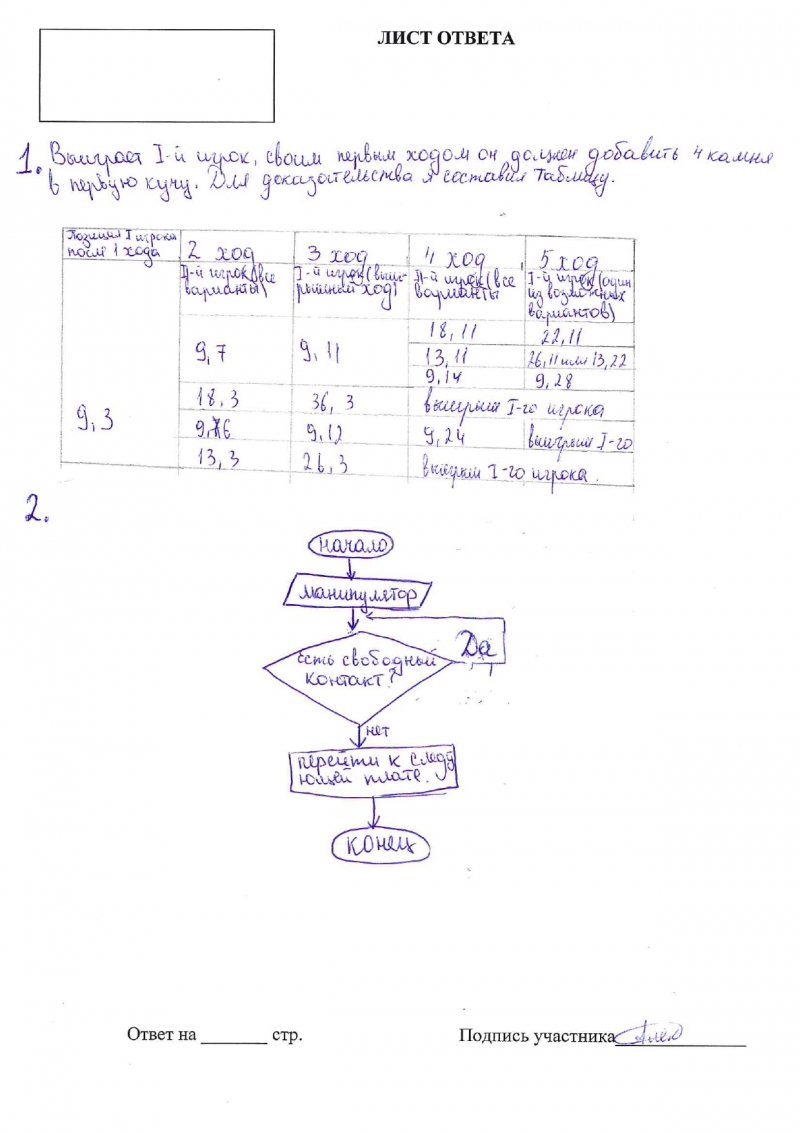 ЛИСТ ОТВЕТА
1. Выиграет I-й игрок, своим первым ходом он должен добавить 4 камня
в первую кучу. Для доказательства я составил таблицу.
Позиция I игрока после 1 хода 2 ход 3 ход 4 ход 5 ход
II-й игрок (все варианты) I-й игрок (выигрышный ход) II-й игрок (все варианты I-й игрок (один из возможных вариантов)
18, 11 22, 11
9, 7 9, 11 13, 11 26, 11 или 13, 22
9, 14 9, 28
9, 3 18, 3 36, 3 выигрыш I-го игрока
9, 6 9, 12 9, 24 выигрыш I-го
13, 3 26, 3 выигрыш I-го игрока.
2.
начало
манипулятор
есть свободный
контакт?
Да
нет
перейти к следу
ющей плате.
конец
Ответ на _______ стр. Подпись участника